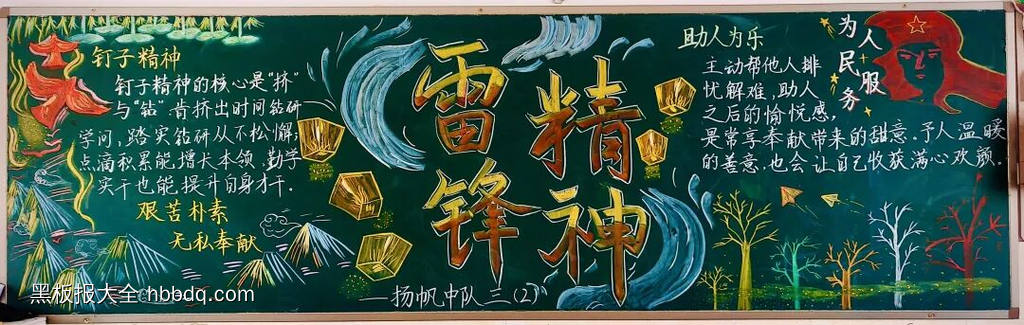 钉子精神
钉子精神的核心是“挤”
与“钻”肯挤出时间钻研
学问,踏实钻研从不松懈,
点滴积累能增长本领,勤学
实干也能提升自身才干.
艰苦朴素
无私奉献
雷锋
精神
——扬帆中队三(2)
助人为乐
主动帮他人排
忧解难,助人
之后的愉悦感,
是常享奉献带来的甜意.予人温暖
的善意.也会让自己收获满心欢颜.
为人民服务
黑板报大全 hbbdq.com